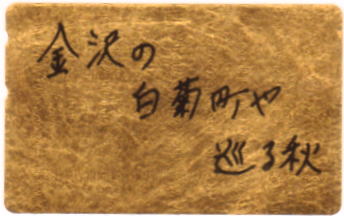 金沢の
白菊町や
巡る秋